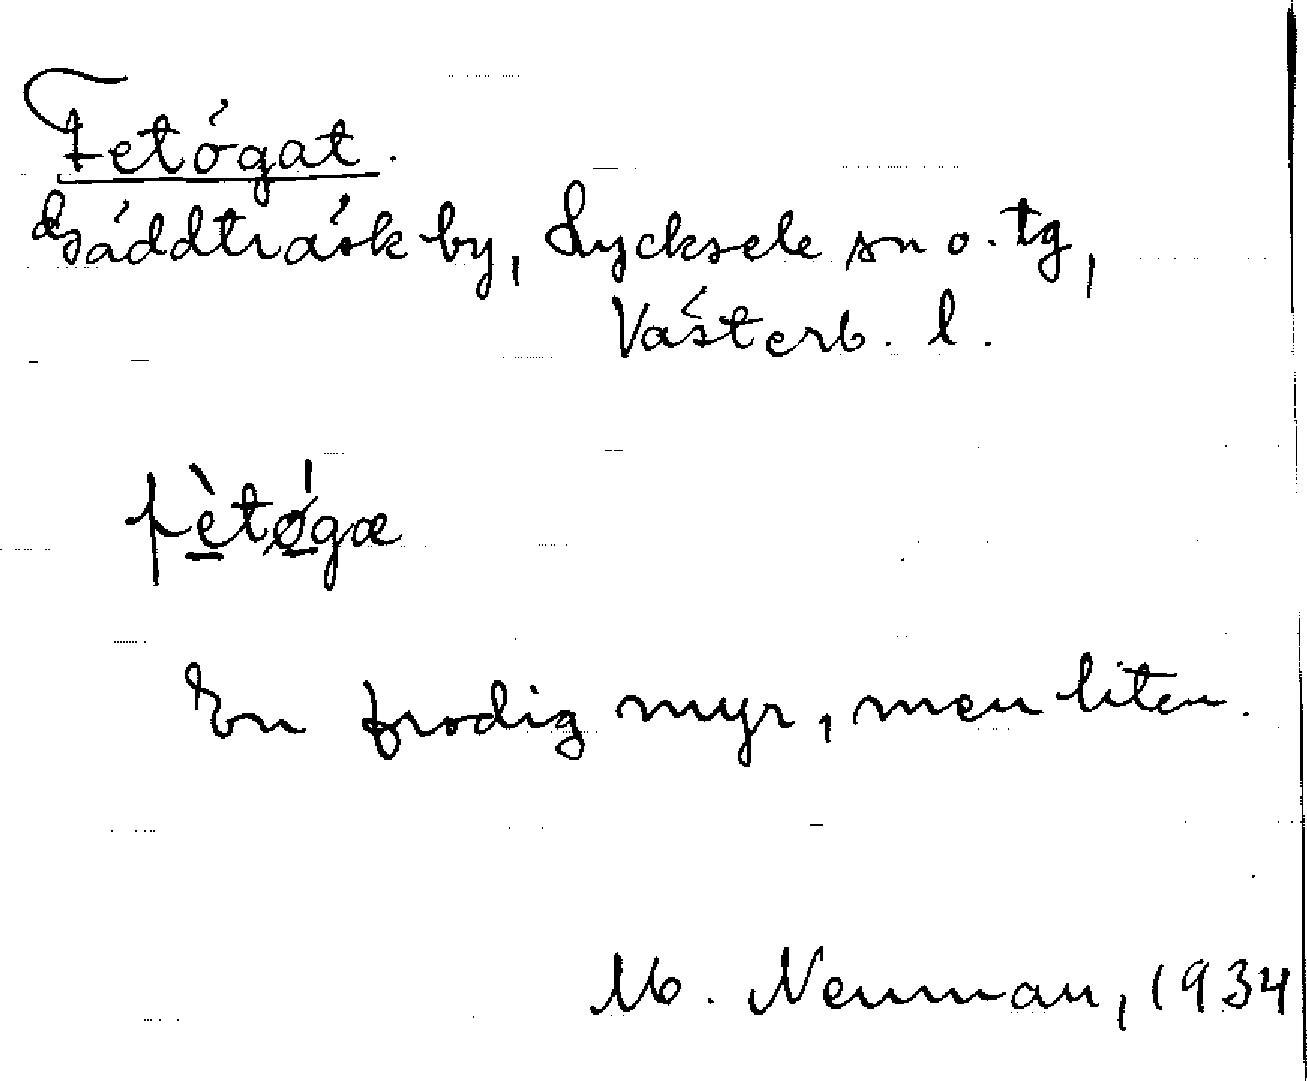 Fetögat.
Gäddträsk by, Lycksele sn o. tg,
Västerb. l.
fètøgæ
En frodig myr, men liten.
M. Neuman, 1934